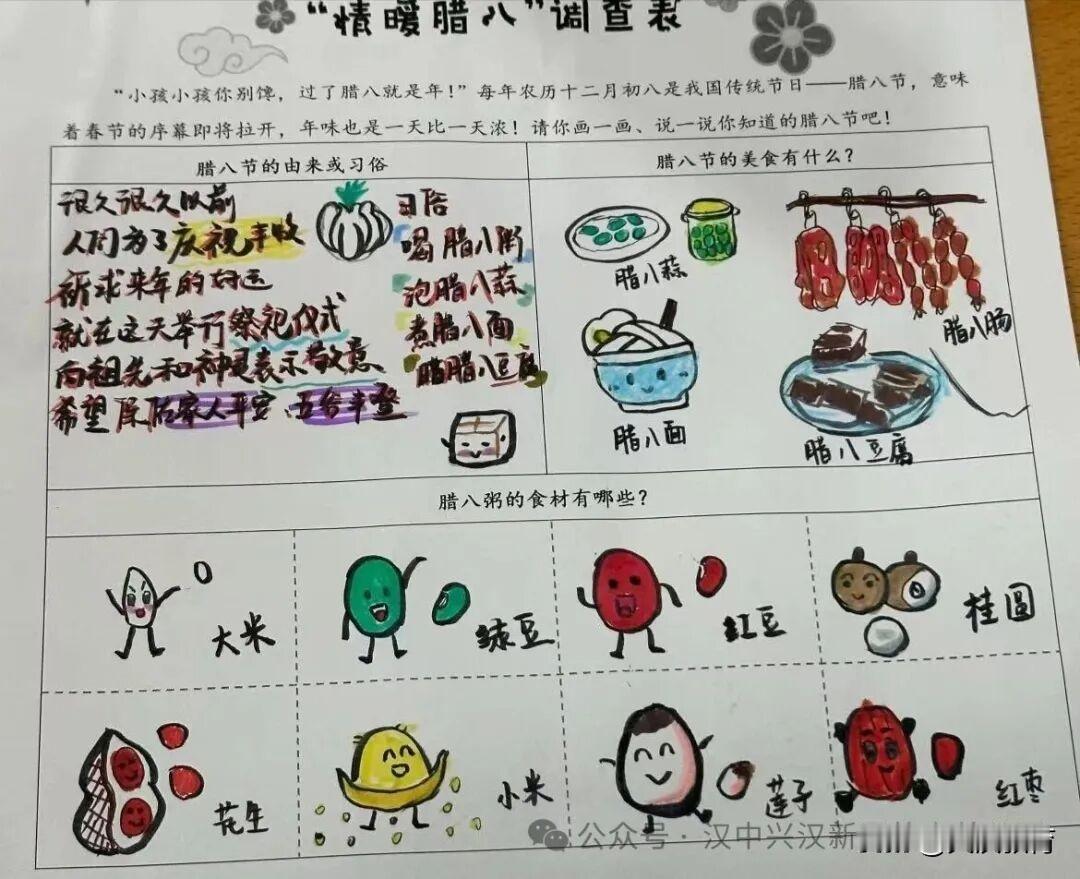 “情暖腊八”调查表
“小孩小孩你别馋，过了腊八就是年！”每年农历十二月初八是我国传统节日——腊八节，意味
着春节的序幕即将拉开，年味也是一天比一天浓！请你画一画、说一说你知道的腊八节吧！
腊八节的由来或习俗
很久很久以前
人们为了庆祝丰收
祈求来年的好运
就在这天举行祭祀仪式
向祖先和神灵表示敬意
希望保佑家人平安、五谷丰登
习俗
喝腊八粥
泡腊八蒜
煮腊八面
晒腊八豆腐
腊八节的美食有什么？
腊八蒜
腊八肠
腊八面
腊八豆腐
腊八粥的食材有哪些？
大米
绿豆
红豆
桂圆
花生
小米
莲子
红枣
公众号·汉中兴汉新